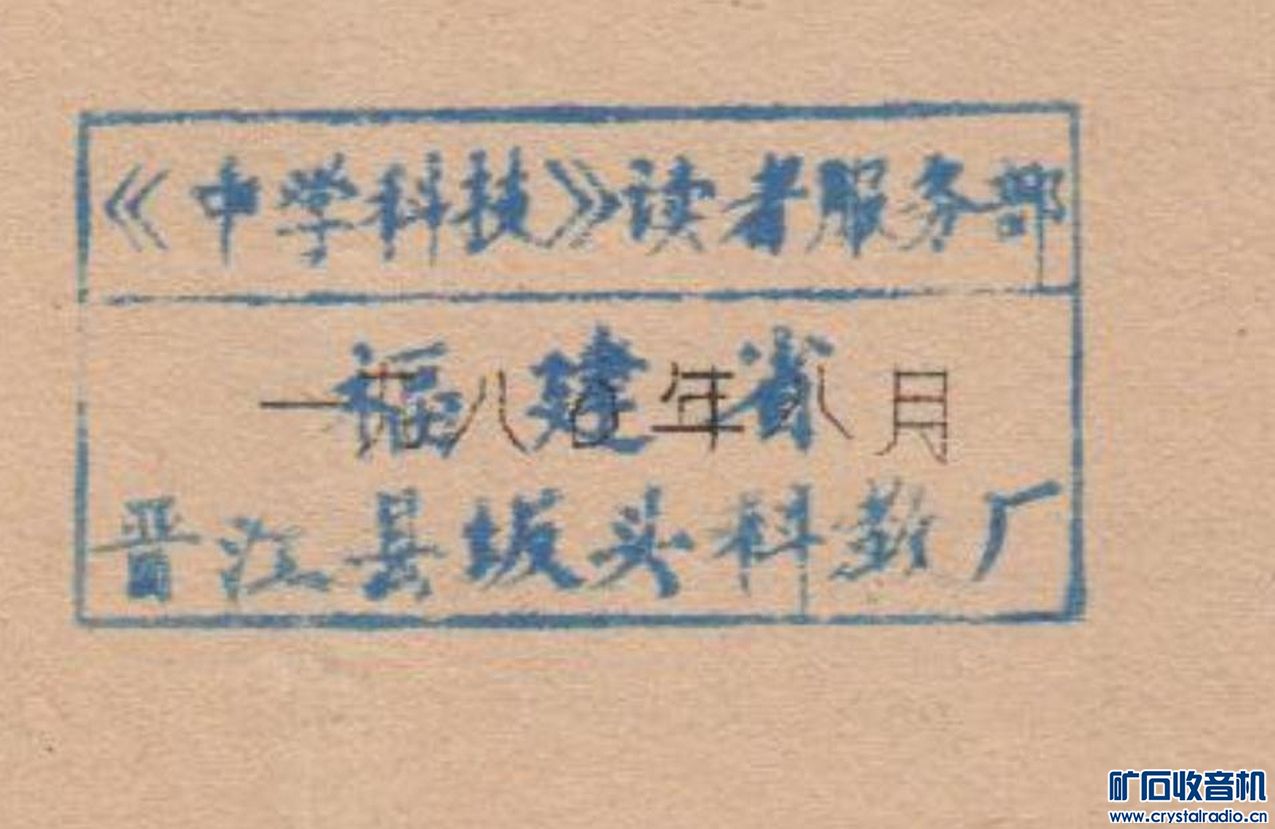 《中学科技》读者服务部
福建省
一九八〇年八月
晋江县坂头科教厂
矿石收音机
www.crystalradio.cn